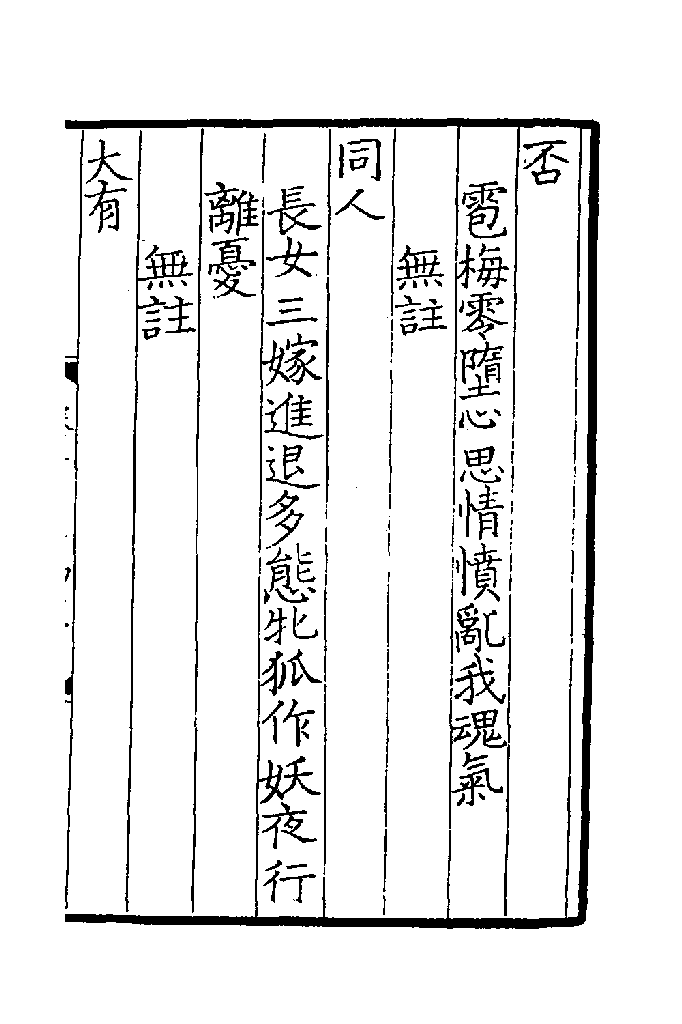 否
雹梅零墮心思情憒亂我魂氣
無註
同人
長女三嫁進退多態牝狐作妖夜行
離憂
無註
大有